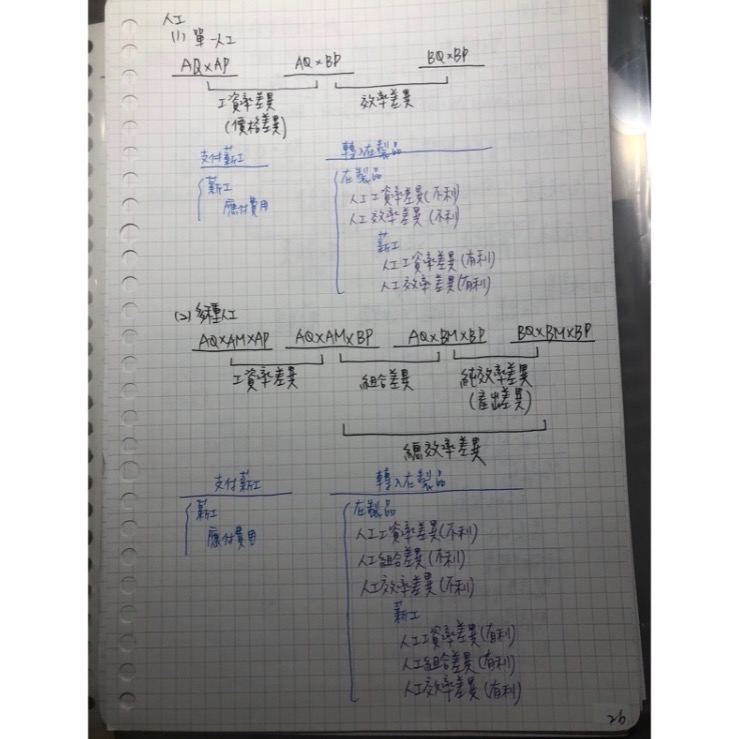 人工
(1) 單一人工
AQ×AP AQ×BP BQ×BP
工資率差異 效率差異
(價格差異)
支付薪工 轉入在製品
薪工 在製品
應付費用 人工工資率差異(不利)
人工效率差異 (不利)
薪工
人工工資率差異 (有利)
人工效率差異 (有利)
(2) 多種人工
AQ×AM×AP AQ×AM×BP AQ×BM×BP BQ×BM×BP
工資率差異 組合差異 純效率差異
(產出差異)
總效率差異
支付薪工 轉入在製品
薪工 在製品
應付費用 人工工資率差異(不利)
人工組合差異 (不利)
人工效率差異 (不利)
薪工
人工工資率差異 (有利)
人工組合差異 (有利)
人工效率差異 (有利)
26